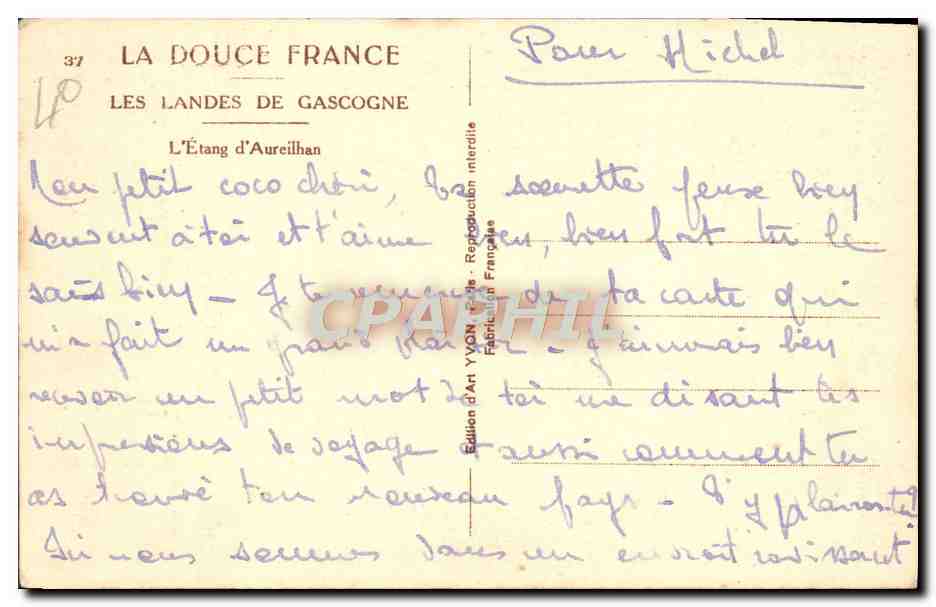 37 LA DOUCE FRANCE
LES LANDES DE GASCOGNE
L'Étang d'Aureilhan
40
Pour Michel
Edition d'Art YVON, Paris - Reproduction interdite
Fabrication Française
CPAPHIL
Mon petit coco chéri, ta soeurette pense bien
souvent à toi et t'aime bien, bien fort tu le
sais bien - Je te remercie de ta carte qui
m'a fait un grand plaisir - J'aimerais bien
recevoir un petit mot de toi me disant tes
impressions de voyage et aussi comment tu
as trouvé ton nouveau pays - T'y plairas-tu?
Ici nous sommes dans un endroit ravissant